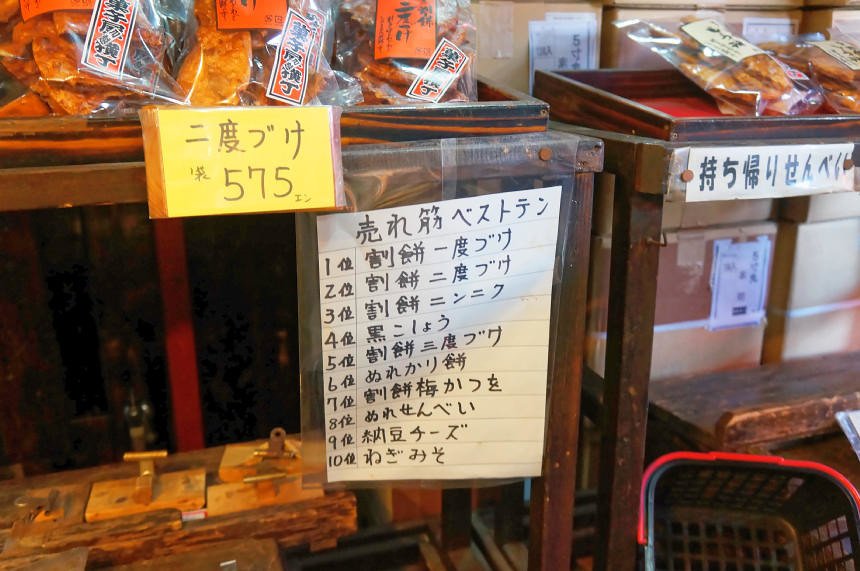 菓子屋横丁
菓子屋横丁
二度づけ
菓子屋横丁
二度づけ
袋 575エン
持ち帰りせんべい
売れ筋 ベストテン
1位 割餅一度づけ
2位 割餅二度づけ
3位 割餅ニンニク
4位 黒こしょう
5位 割餅三度づけ
6位 ぬれかり餅
7位 割餅梅かつを
8位 ぬれせんべい
9位 納豆チーズ
10位 ねぎみそ